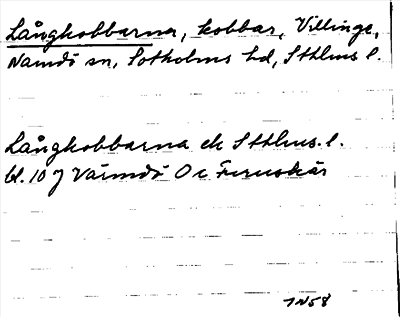 Långkobbarna, kobbar, Villinge,
Nämdö sn, Sotholms hd, Sthlms l.
Långkobbarna ek Sthlms. l.
bl. 10 J Värmdö O c Furuskär
1N58